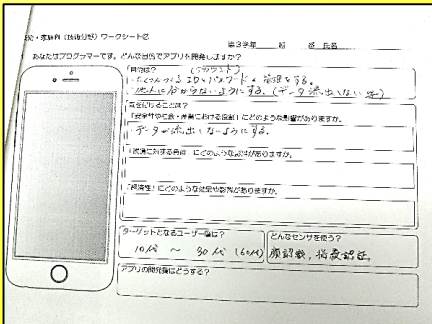 家庭科（技術分野）ワークシート②
第3学年 組 番 氏名
あなたはプログラマーです。どんな目的でアプリを開発しますか？
目的は？ (アカウント)
たくさんつくるIDとパスワードを管理をする。
他人に分からないようにする。(データ流出しない等)
気を付けることは？
「安全性や社会・産業における役割」にどのような影響がありますか。
データが流出しないようにする。
「環境に対する負荷」にどのような影響がありますか。
「経済性」にどのような効果や影響がありますか。
ターゲットとなるユーザー層は？
10代 ～ 30代 (60代)
どんなセンサを使う？
顔認験, 指紋認証,
アプリの開発費はどうする？